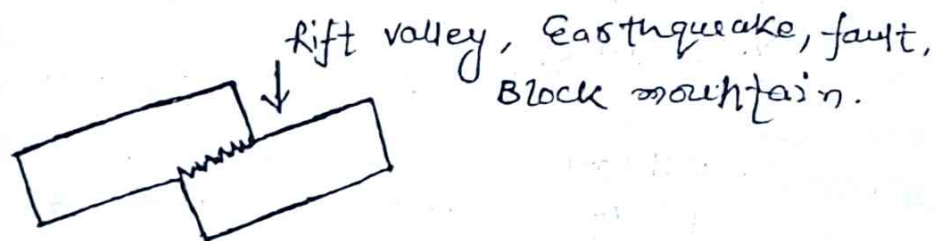 Rift valley, Earthqueake, fault,
Block mountain.